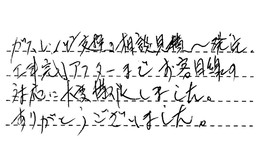 ガスコンロ交換の相談見積〜発注、
工事完了アフターまでお客目線の
対応に大変感激しました。
ありがとうございました。